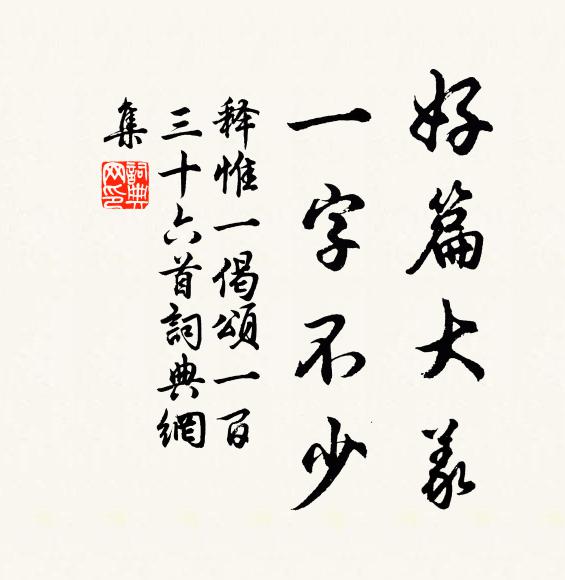 好篇大义
一字不少
释惟一偈頌一百
三十六首詞典網
集
詞典网印